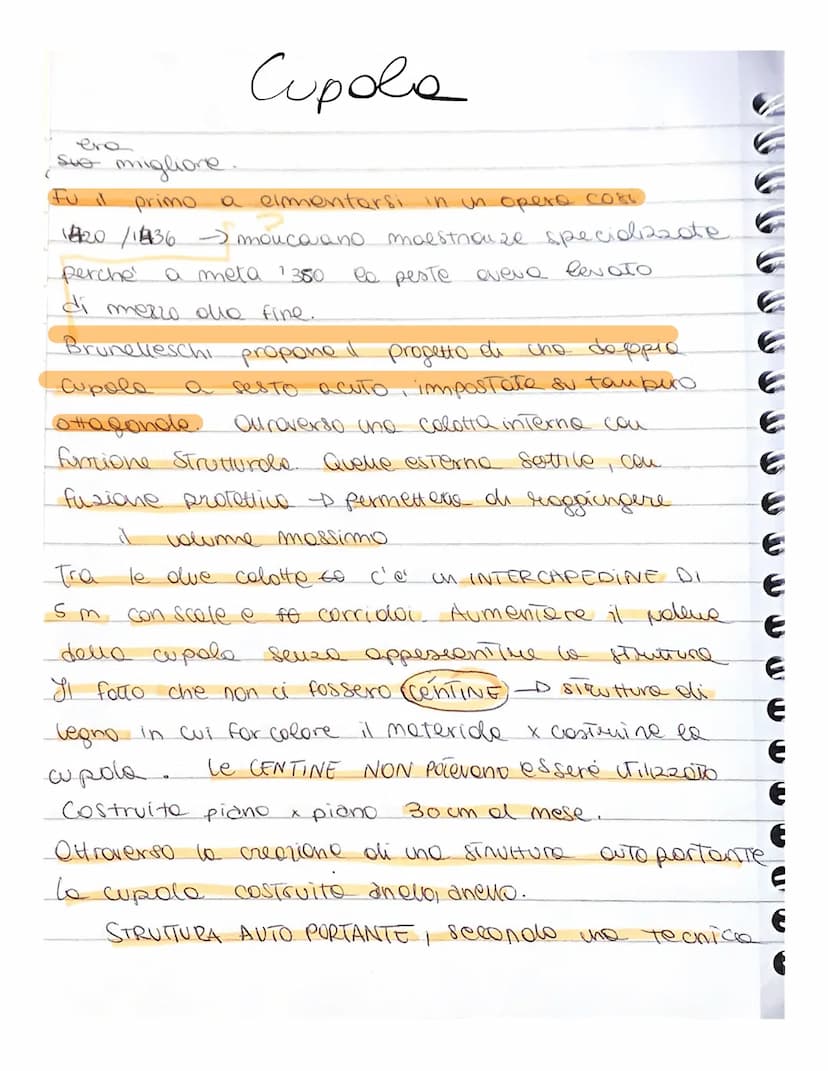 Cupola
era
suo migliore.
Fu il primo a cimentarsi in un opera così
?
1420 /1436 → mancavano maestranze specializzate
perché a metà '350 la peste aveva levato
di mezzo alla fine.
Brunelleschi propone il progetto di una doppia
cupola a sesto acuto, impostata su tamburo
ottagonale. Attraverso una calotta interna con
funzione strutturale. Quelle esterna sottile, con
fuzione protettiva → permetteva di raggiungere
il volume massimo
Tra le due calotte c'è un INTERCAPEDINE DI
5 m con scale e corridoi. Aumentare il volume
della cupola senza appesantire la struttura
Il fatto che non ci fossero CENTINE → struttura di
legno in cui far colare il materiale x costruire la
cupola. Le CENTINE NON POTEVANO essere utilizzato
Costruita piano x piano 30 cm al mese.
Attraverso la creazione di una struttura autoportante
la cupola costruita anello, anello.
STRUTTURA AUTO PORTANTE, secondo una tecnica